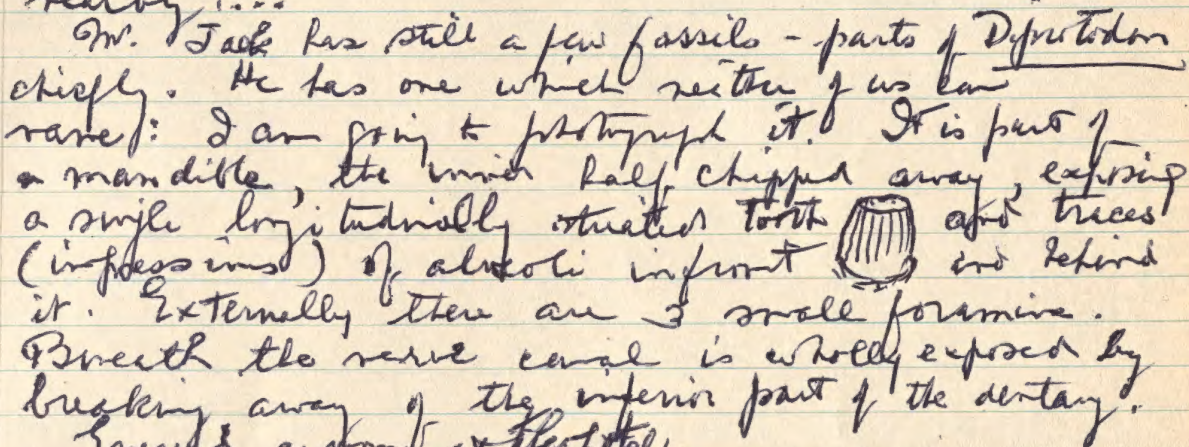 nearby ....
Mr. Jack has still a few fossils - parts of Dipnotodon
chiefly. He has one which neither of us can
name: I am going to photograph it. It is part of
a mandible, the inner half chipped away, exposing
a single longitudinally striated tooth and traces
(impressions) of alveoli infront and behind
it. Externally there are 3 small foramina.
Beneath the nerve canal is wholly exposed by
breaking away of the inferior part of the dentary.